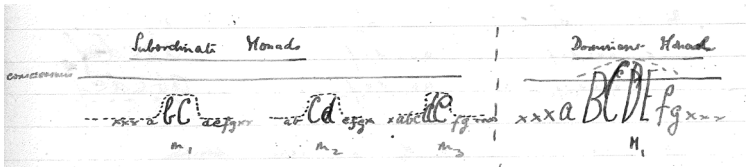 Subordinate Monads Dominant Monad
consciousness
xxx a bC defgxx ab Cd efgx xabcdC fgxxx xxx a BCDE fgxxx
m₁ m₂ m₃ M₁